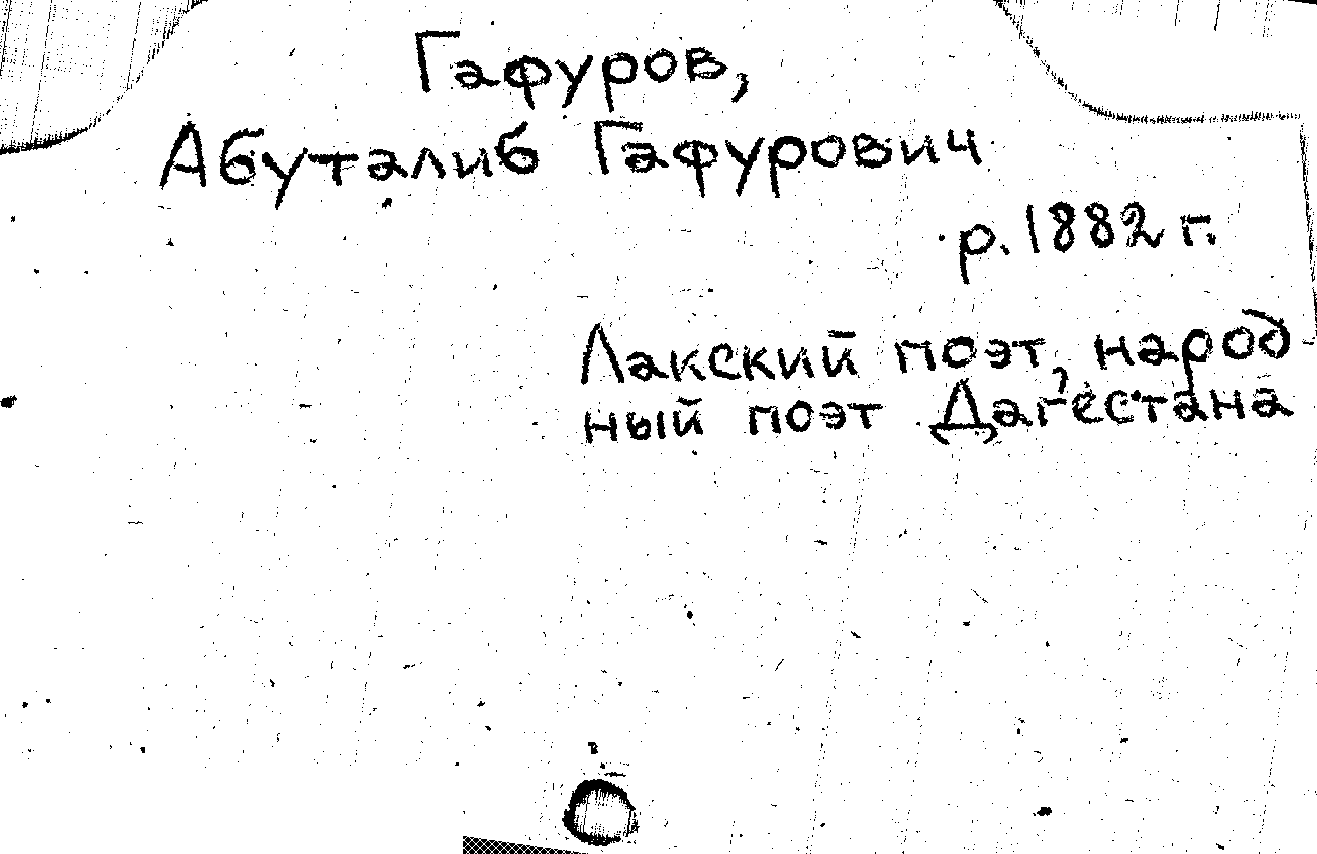 Гафуров,
Абуталиб Гафурович
р. 1882 г.
Лакский поэт, народ
ный поэт Дагестана